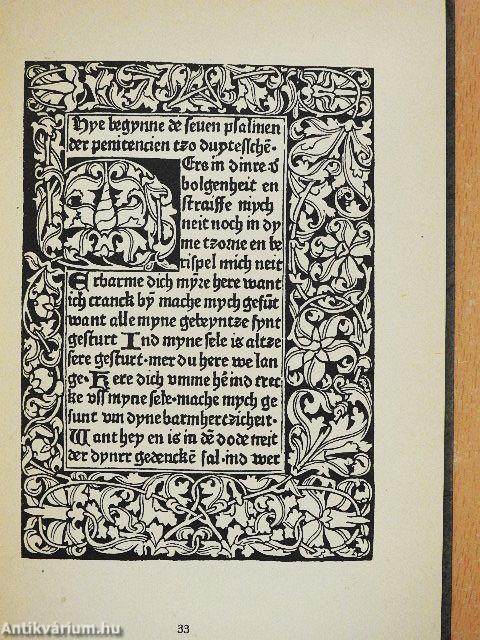 Hye begynne de seuen psalmen
der penitencien tzo duytesschē·
Ers in dinre v̄
bolgenheit en
straiffe mych
neit noch in dy
me tzorne en be
rispel mich neit
Erbarme dich mȳre here want
ich cranck bȳ mache mych gesūt
want alle myne gebeyntze synt
gesturt Ind myne sele is altze
sere gesturt·mer du here we lan
ge·Here dich vmme hē ind trec
ke vss myne sele·mache mych ge
sunt vm dyne barmhertzicheit·
Want hey en is in dē dode neit
der dynrr gedenckē sal·ind wer
33
Antikvárium.hu